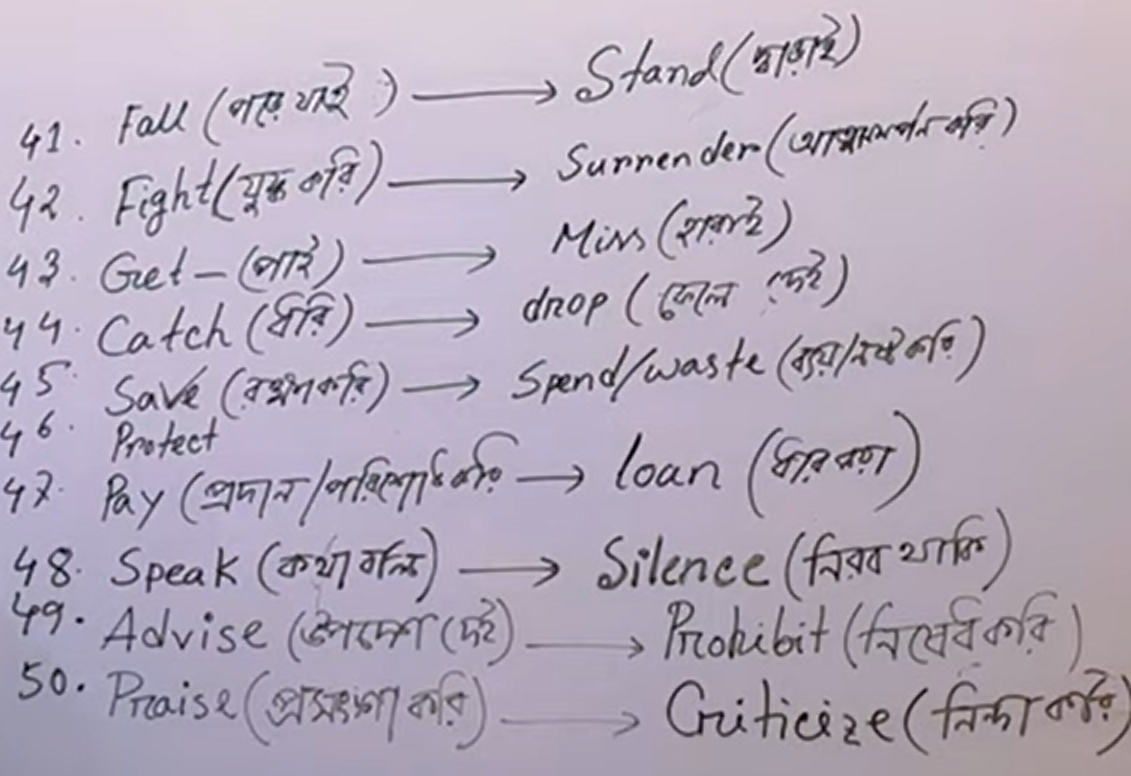 41. Fall (পরে যাই) → Stand (দ্বাড়াই)
42. Fight (যুদ্ধ করি) → Surrender (আত্মসমর্পন করি)
43. Get – (পাই) → Miss (হারাই)
44. Catch (ধরি) → drop (ফেলে দেই)
45. Save (রক্ষা করি) → Spend/waste (ব্যয়/নষ্ট করি)
46. Protect
47. Pay (প্রদান/পরিশোধ করি → loan (ধার করা)
48. Speak (কথা বলি) → Silence (নিরব থাকি)
49. Advise (উপদেশ দেই) → Prohibit (নিষেধ করি)
50. Praise (প্রসংশা করি) → Criticize (নিন্দা করি)